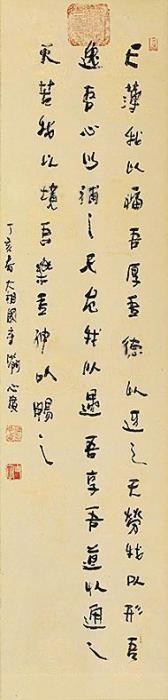 天薄我以福吾厚吾德以迓之天勞我以形吾
逸吾心以補之天危我以遇吾亨吾道以通之
天苦我以境吾樂吾神以暢之
丁亥春大相國寺釋心廣